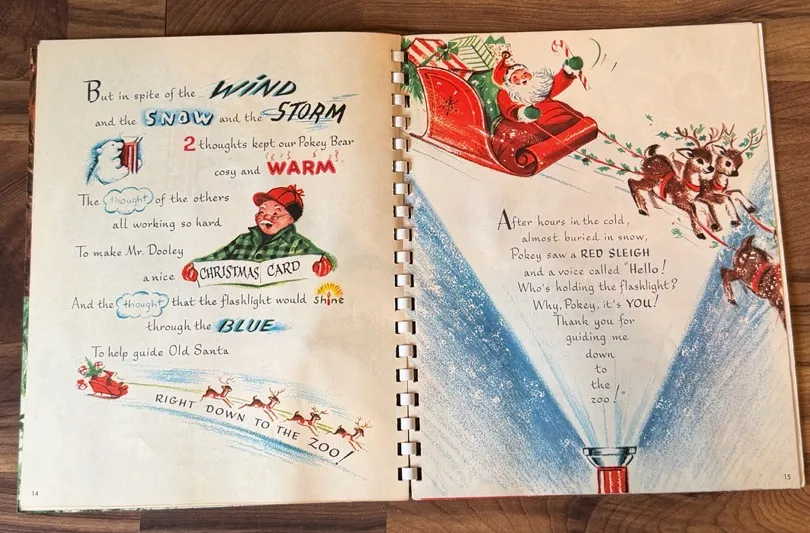 But in spite of the WIND
and the SNOW and the STORM
2 thoughts kept our Pokey Bear
cosy and WARM
The thought of the others
all working so hard
To make Mr. Dooley
a nice CHRISTMAS CARD
And the thought that the flashlight would shine
through the BLUE
To help guide Old Santa
RIGHT DOWN TO THE ZOO!
14
After hours in the cold,
almost buried in snow,
Pokey saw a RED SLEIGH
and a voice called "Hello!
Who's holding the flashlight?
Why, Pokey, it's YOU!
Thank you for
guiding me
down
to
the
zoo!"
15